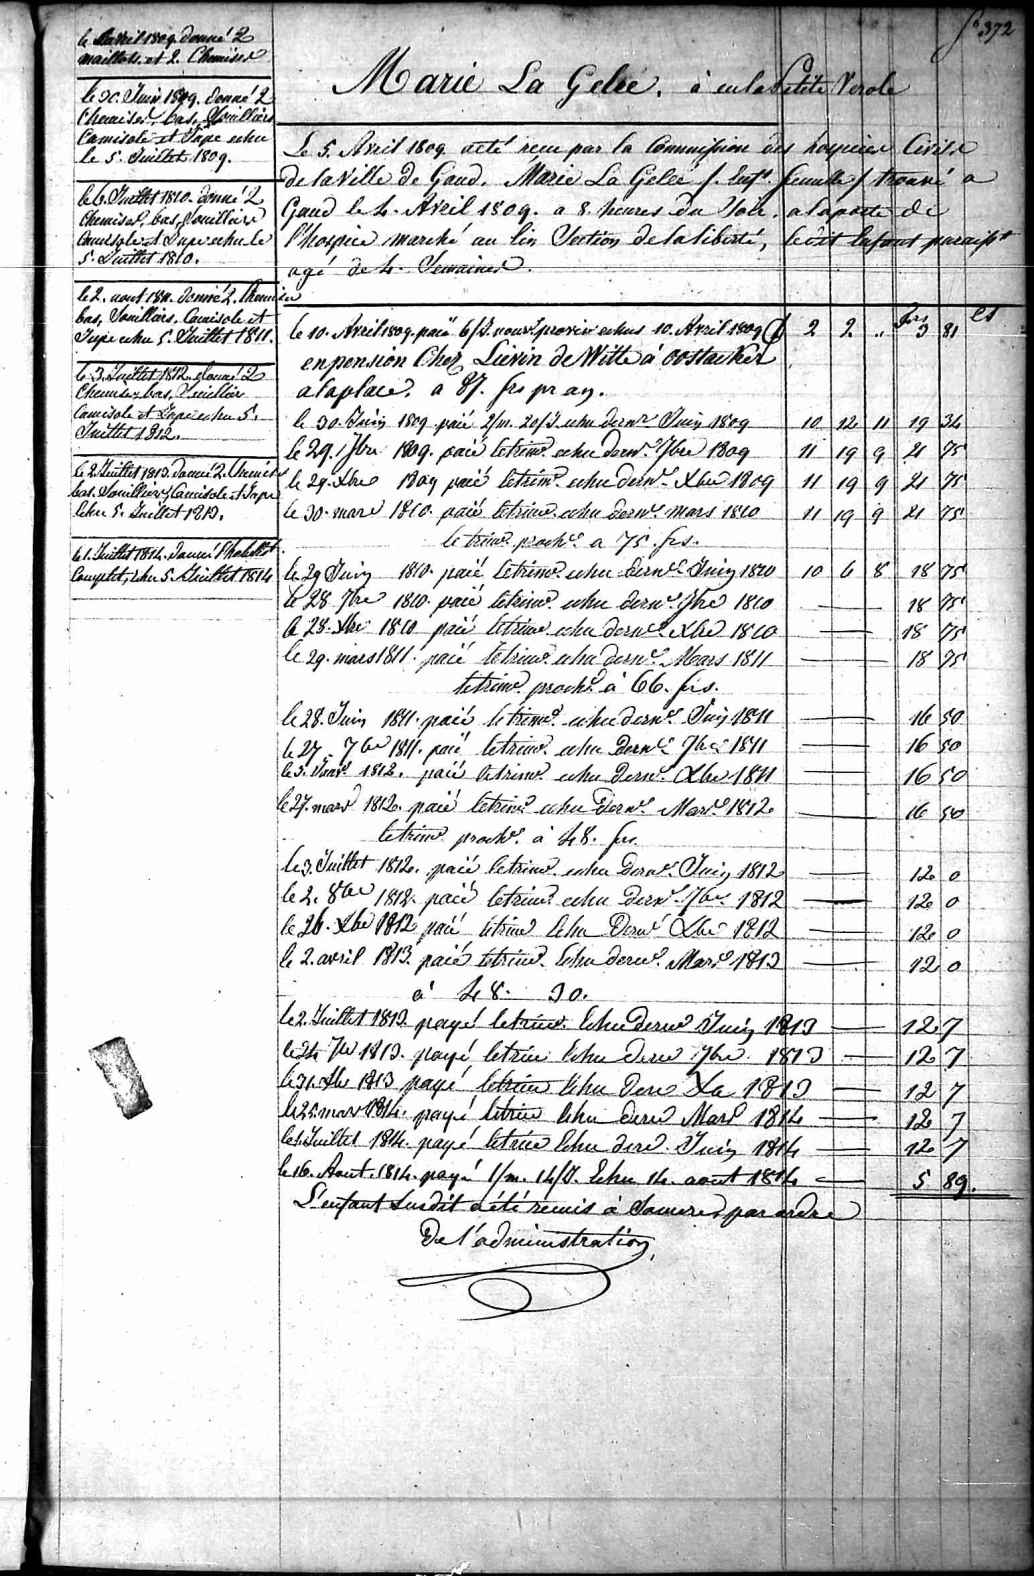 fo 372
le avril 1809. donné 2
maillots et 2. Chemises
le 30. Juin 1809. donné 2
Chemises, bas, Souilliers
Camisole et Jupe echu
le 5. Juillet 1809.
le 6. Juillet 1810. donné 2
Chemises, bas, Souilliers
Camisole et Jupe echu le
5. Juillet 1810.
le 2. aout 1811. donné 2. Chemises
bas, Souilliers, Camisole et
Jupe echu 5. Juillet 1811.
le 3. Juillet 1812. donné 2
Chemises bas, Souilliers
Camisole et Jupe echu 5.
Juillet 1812.
le 2 Juillet 1813. donné 2. Chemises
bas. Souilliers Camisole et Jupe
Echu 5. Juillet 1813.
le 1. Juillet 1814. donné l'habillet
Complet, echu 5. Juillet 1814
Marie La Gelée. à eu la Petite Verole
Le 5. Avril 1809 a été recu par la Commission des hospices Civils
de la Ville de Gand. Marie La Gelée /. Enft. femelle / trouvé a
Gand le 4. Avril 1809. a 8. heures du Soir, a la porte de
l'hospice marché au lin Section de la liberté, le dit Enfant paraisst
agé de 4. Semaines.
frs cs
le 10. Avril 1809. paié 6/J. nourr provis echus 10. Avril 1809 2 2 .. 3 81
en pension Chez Lievin de Witte à oostacker
a la place, a 87. frs pr an.
le 30. Juin 1809. paié 2/m. 20/J. echu dernr Juin 1809 10 12 11 19 34
le 29. 7bre 1809. paié le trimr. echu dernr. 7bre 1809 11 19 9 21 75
le 29. Xbre 1809 paié le trimr. echu dernr. Xbre 1809 11 19 9 21 75
le 30. mars 1810. paié le trimr. echu dernr. mars 1810 11 19 9 21 75
le trimr. prochr. a 75. frs.
le 29 Juin 1810. paié le trimr. echu dernr. Juin 1810 10 6 8 18 75
le 28. 7bre 1810. paié le trimr. echu dernr. 7bre 1810 — 18 75
le 28. Xbre 1810 paié le trimr. echu dernr. Xbre 1810 — 18 75
le 29. mars 1811. paié le trimr. echu dernr. Mars 1811 — 18 75
le trimr. prochr. à 66. frs.
le 28. Juin 1811. paié le trimr. echu dernr. Juin 1811 — 16 50
le 27. 7bre 1811. paié le trimr. echu dernr. 7bre 1811 — 16 50
le 3. Janvr. 1812. paié le trimr. echu dernr. Xbre 1811 — 16 50
le 27. mars 1812. paié le trimr. echu dernr. Mars 1812 — 16 50
le trimr. prochr. à 48. frs.
le 3. Juillet 1812. paié le trimr. echu dernr. Juin 1812 — 12 0
le 2. 8bre 1812. paié le trimr. echu dernr. 7bre 1812 — 12 0
le 26. Xbre 1812 paié le trimr. Echu dernr. Xbre 1812 — 12 0
le 2. avril 1813. paié le trimr. Echu dernr. Mars 1813 — 12 0
à 48. 30.
le 2. Juillet 1813. payé le trimr. Echu dernr Juin 1813 — 12 7
le 24 7br 1813. payé le trim Echu dern 7bre 1813 — 12 7
le 31. Xbr 1813 payé le trim Echu dern Xre 1813 — 12 7
le 25 mars 1814. payé le trim Echu dern Mars 1814 — 12 7
le 1. Juillet 1814. payé le trim Echu dern Juin 1814 — 12 7
le 16. Aout. 1814. payé 1/m. 14/J. Echu 14. aout 1814 — 5 89.
L'enfant Susdit a été remis à Sa mere, par ordre
De l'administration,